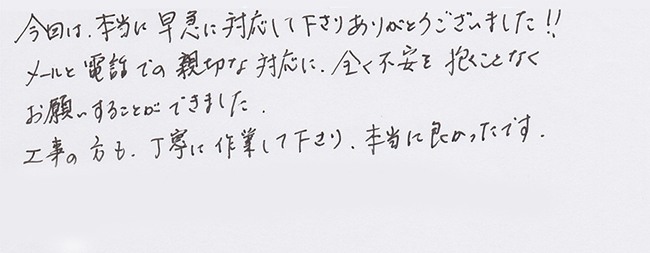 今回は、本当に早急に対応して下さりありがとうございました!!
メールと電話での親切な対応に、全く不安を抱くことなく
お願いすることができました.
工事の方も、丁寧に作業して下さり、本当に良かったです.